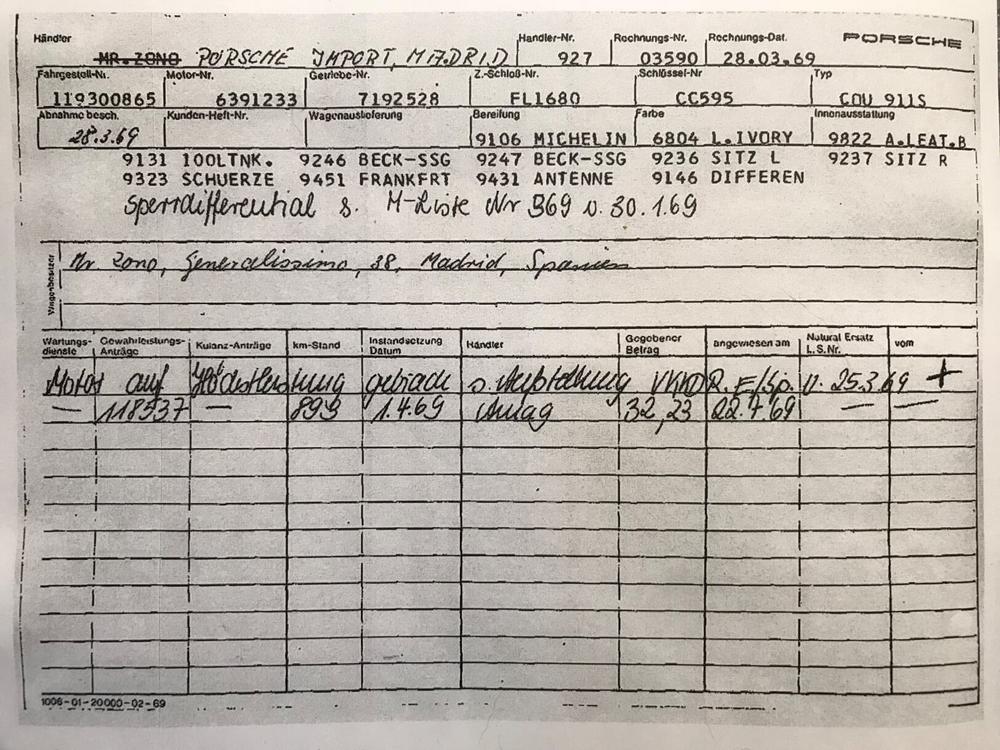 Händler Händler-Nr. Rechnungs-Nr. Rechnungs-Dat. PORSCHE
MR. ZONO PORSCHE IMPORT, MADRID 927 03590 28.03.69
Fahrgestell-Nr. Motor-Nr. Getriebe-Nr. Z.-Schloß-Nr. Schlüssel-Nr Typ
119300865 6391233 7192528 FL1680 CC595 COU 911S
Abnahme besch. Kunden-Heft-Nr. Wagenauslieferung Bereifung Farbe Innenausstattung
28.3.69 9106 MICHELIN 6804 L.IVORY 9822 A.LEAT.B
9131 100LTNK. 9246 BECK-SSG 9247 BECK-SSG 9236 SITZ L 9237 SITZ R
9323 SCHUERZE 9451 FRANKFRT 9431 ANTENNE 9146 DIFFEREN
Sperrdifferential s. M-Liste Nr 369 v. 30.1.69
Wagenbesitzer
Mr Zono, Generalissimo, 38, Madrid, Spanien
Wartungs-dienste Gewährleistungs-Anträge Kulanz-Anträge km-Stand Instandsetzung Datum Händler Gegebener Betrag angewiesen am Natural Ersatz L.S.Nr. vom
Motor auf Höchstleistung gebracht s. Aufstellung R. F/Sp. v. 25.3.69 +
— 118537 — 893 1.4.69 Amag 32,23 22.7.69 — —
1006-01-20000-02-69